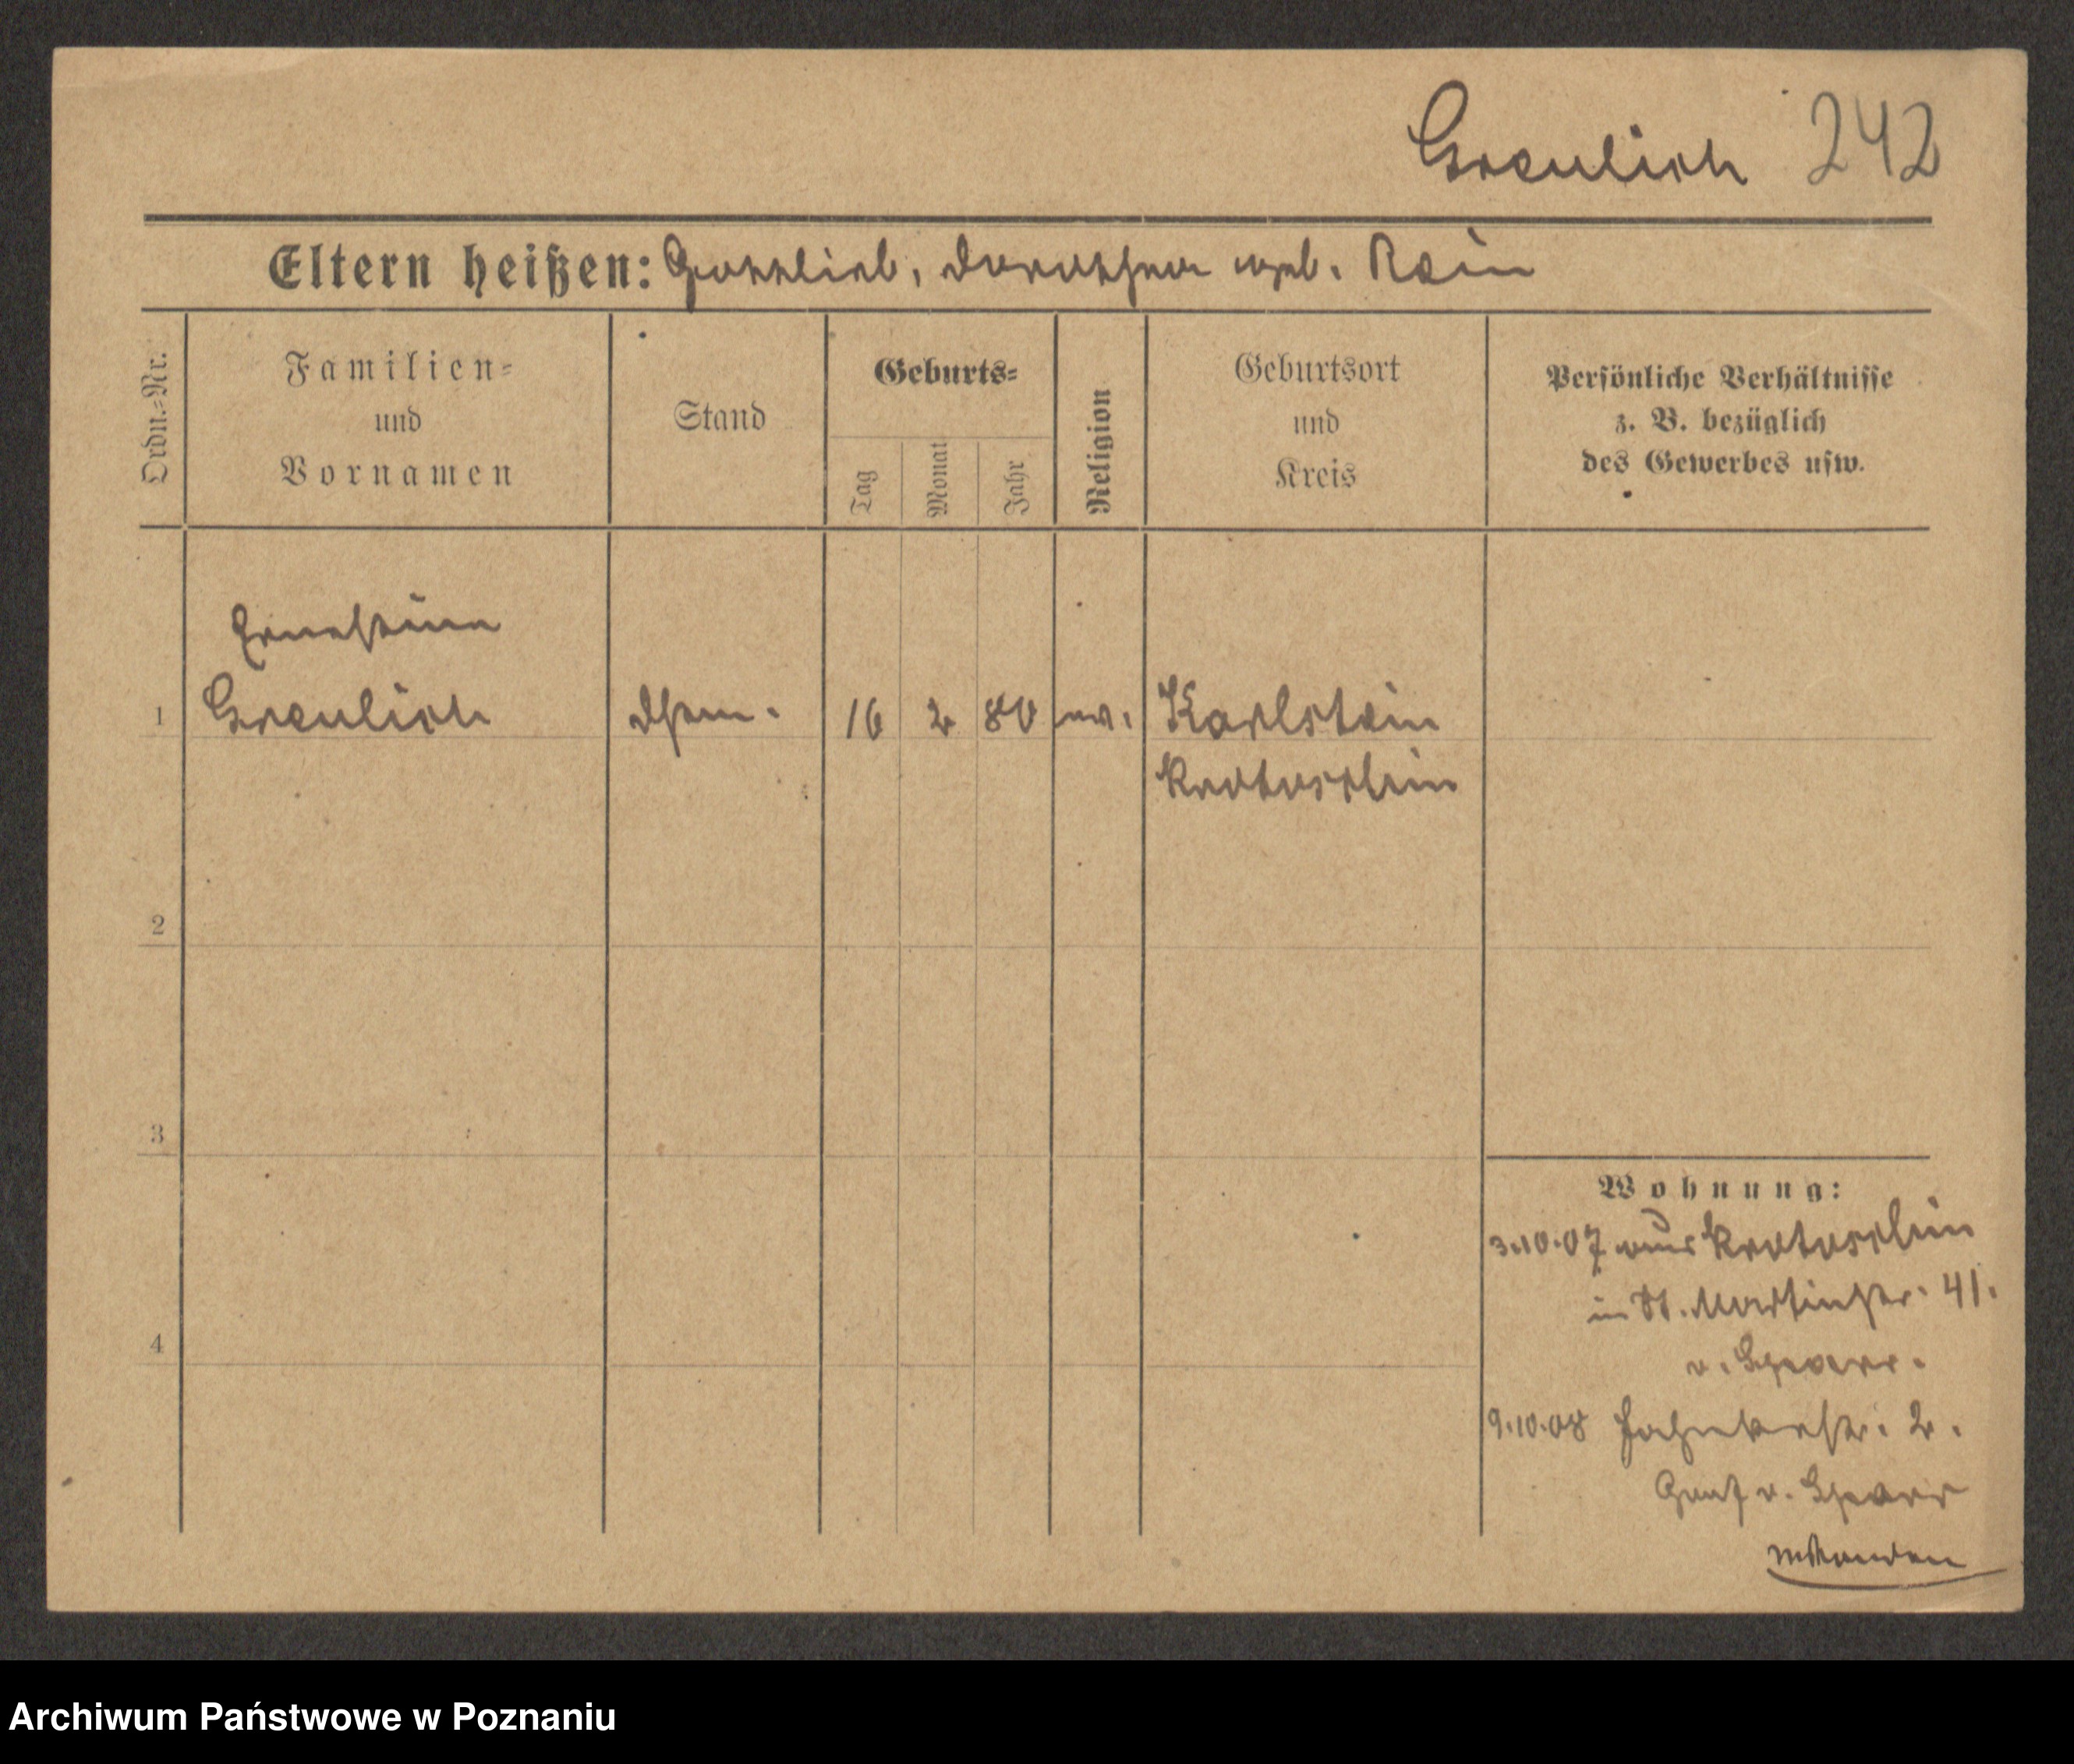 Greulich 242
Eltern heißen: Gottlieb, Dorothea geb. Rein
Ordn.-Nr.
Familien-
und
Vornamen
Stand
Geburts-
Tag
Monat
Jahr
Religion
Geburtsort
und
Kreis
Persönliche Verhältnisse
z. B. bezüglich
des Gewerbes usw.
Ernestine
1 Greulich 16 2 80 ev. Karlstein
Krotoschin
2
3
4
Wohnung:
3.10.07 aus Krotoschin
in St. Martinstr. 41.
v. Sparr.
9.10.08 2.
Graf v. Sparr
Archiwum Państwowe w Poznaniu